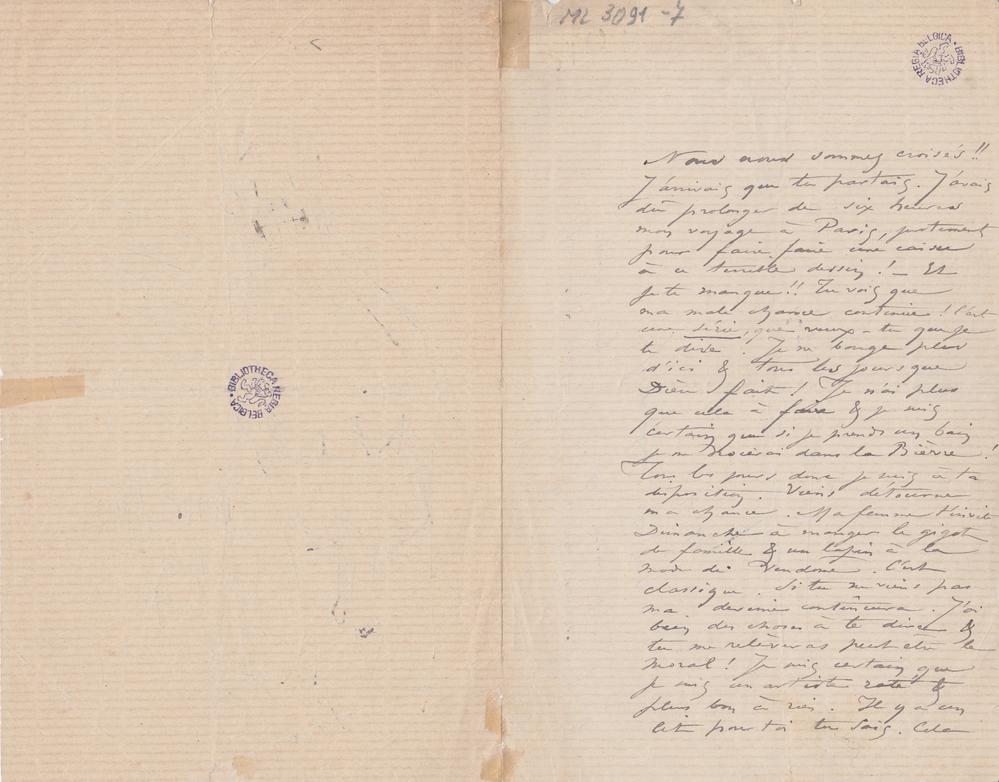 ML 3091-7
BIBLIOTHECA REGIA BELGICA
BIBLIOTHECA REGIA BELGICA
Nous nous sommes croisés !!
J'arrivais que tu partais. J'avais
dû prolonger de six heures
mon voyage à Paris, justement
pour faire faire une caisse
à ce terrible dessin ! — Et
je te manque !! Tu vois que
ma male chance continue ! C'est
une série, que veux-tu que je
te dise. Je ne bouge plus
d'ici & tous les jours que
Dieu fait ! Je n'ai plus
que cela à faire & je suis
certain que si je prends un bain
je me noierai dans la Bièvre !
Tous les jours donc je suis à ta
disposition. Viens détourner
ma chance. Ma femme t'invite
Dimanche à manger le gigot
de famille & un lapin à la
mode de Vendome. C'est
classique. Si tu ne viens pas
ma déveine continuera. J'ai
bien des choses à te dire &
tu me relèveras peut-être le
moral ! Je suis certain que
je suis un artiste raté &
plus bon à rien. Il y a un
lit pour toi tu sais. Cela